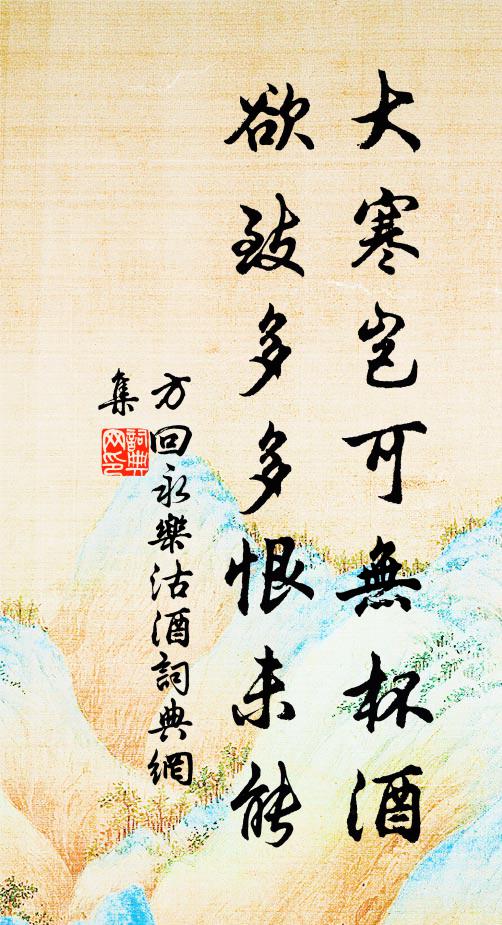 大寒岂可無杯酒
欲致多多恨未能
方回永樂沽酒詞典網
集
詞典網印